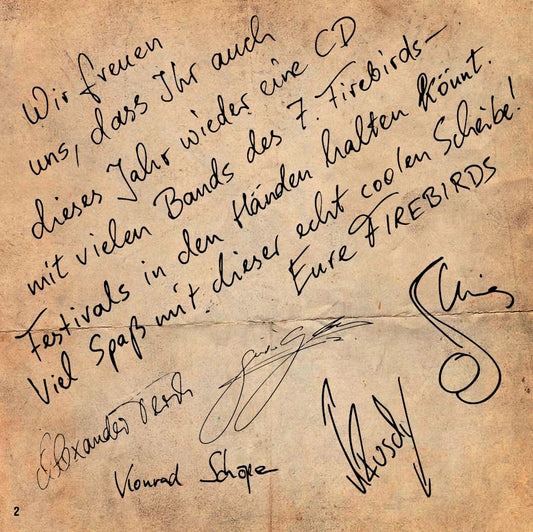 Wir freuen
uns, dass Ihr auch
dieses Jahr wieder eine CD
mit vielen Bands des 7. Firebirds-
Festivals in den Händen halten könnt.
Viel Spaß mit dieser echt coolen Scheibe!
Eure FIREBIRDS
Alexander
Konrad Schöpe
2